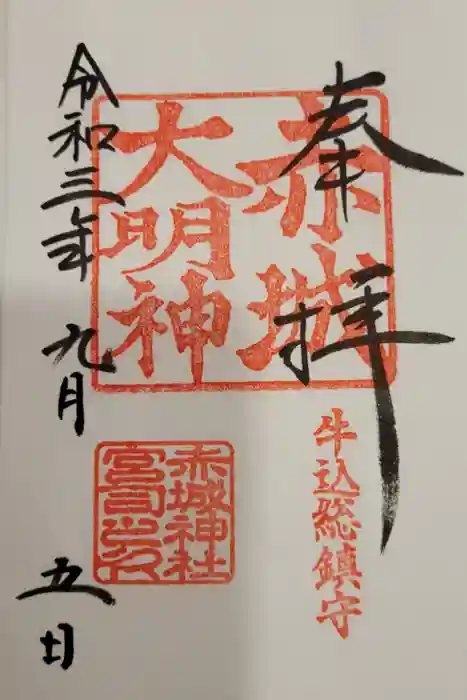 奉拝
赤城
大明神
牛込総鎮守
赤城神社
宮司之印
令和三年九月五日